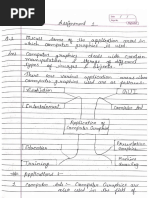 Assignment 1
Q.1 Discuss some of the application used in
which computer graphics is used.
Ans Computer graphics deals with certain
manipulation & storage of different
types of images & objects.
There are various application areas where
computer graphics are used are as follows:-
Visualization
GUI
Entertainment
Computer Art
Application of
Computer
Graphics
Education
Presentation
Graphics
Training
Machine
Drawing
Applications :-
1 Computer Art:- Computer Graphics are
used in the field of